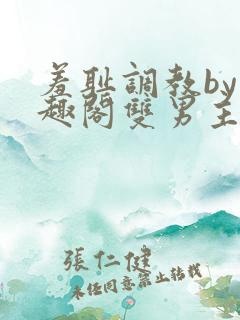 羞耻調教by
趣閣雙男主
張仁健
未经同意禁止转载